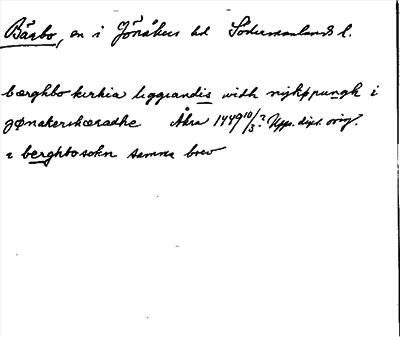 Bärbo, sn i Jönåkers hd Södermanlands l.
bærghbo kirkia liggiandis widh nykøpungh i
gønakershæradhe Åkra 1449 10/3? Upps. dipl. orig.
i berghbosokn samma brev